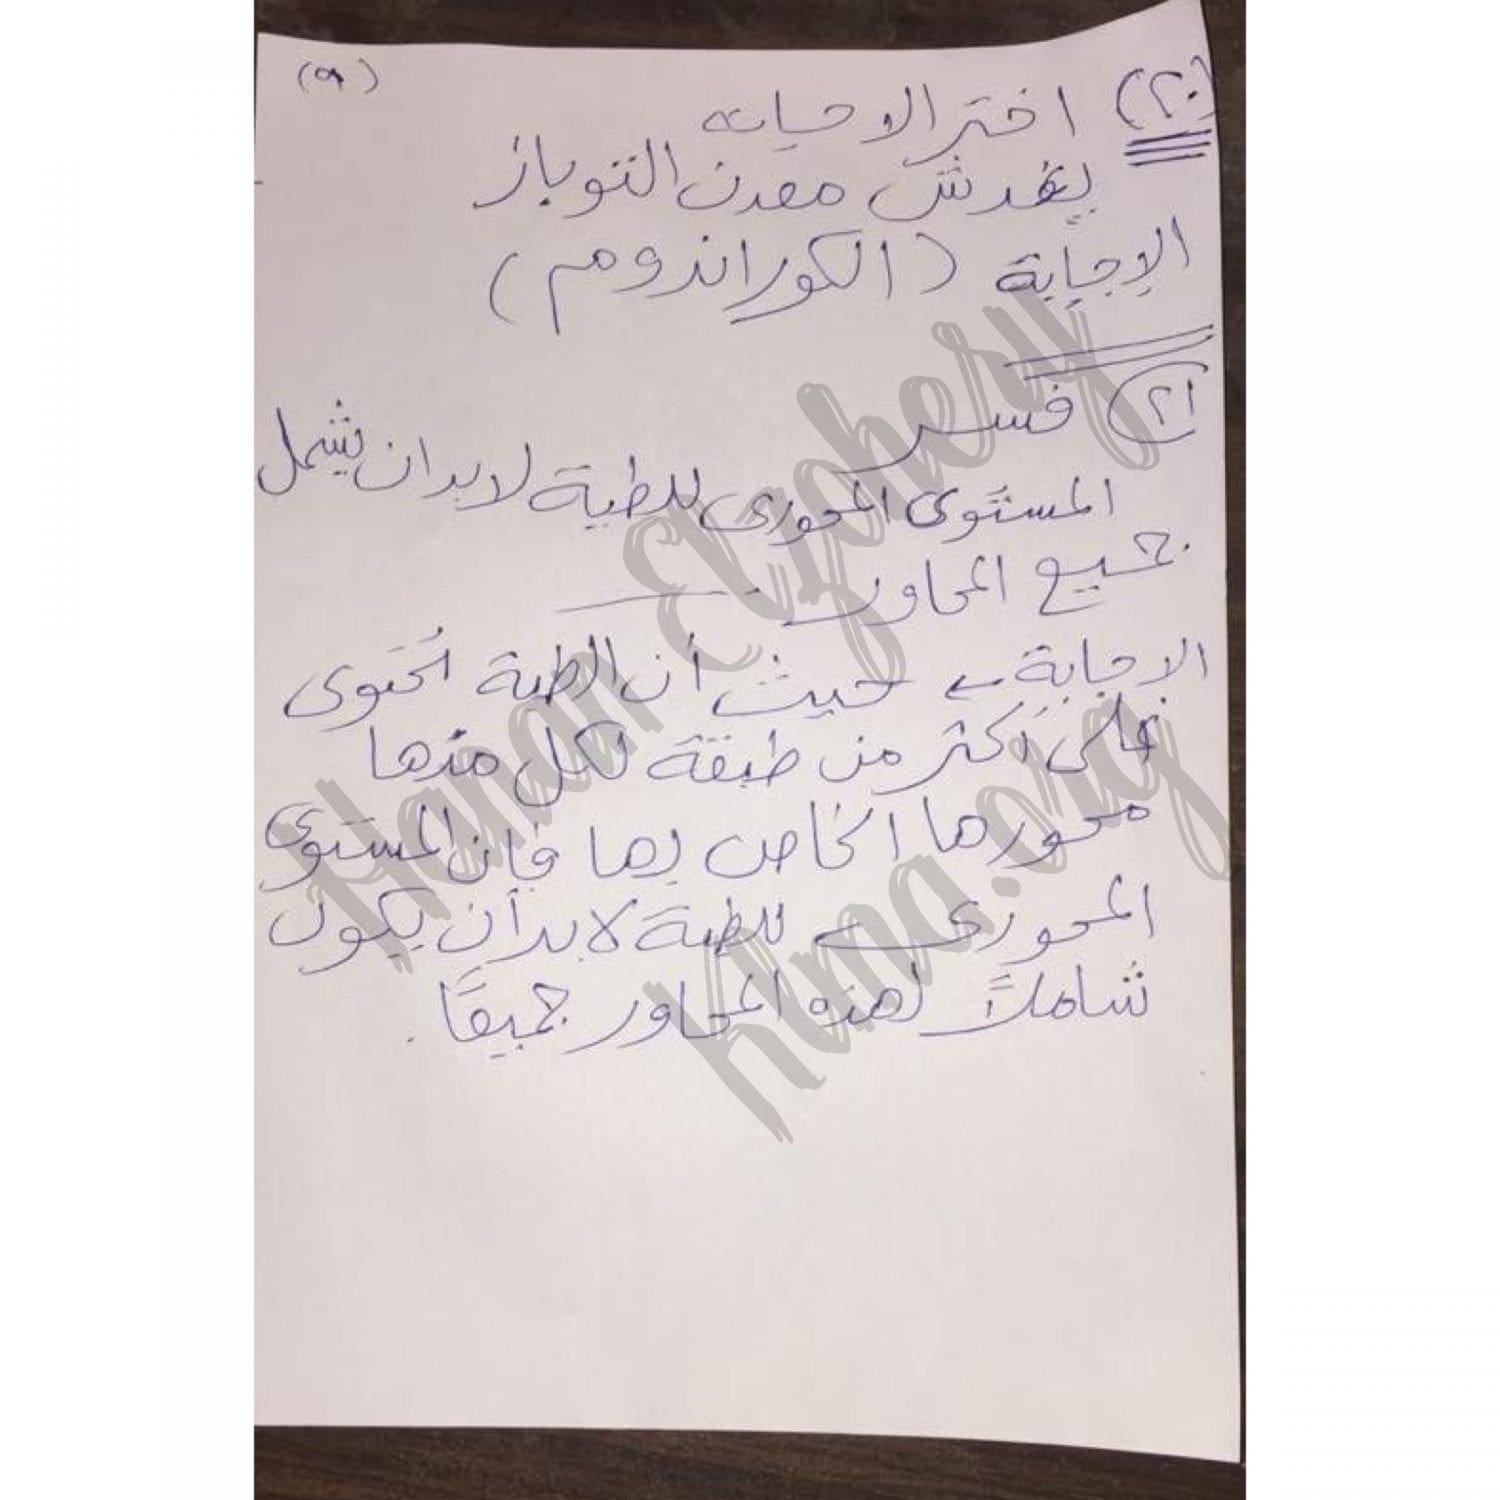 (٩)
(٢٠) اختر الاجابه
يخدش معدن التوباز
الإجابة (الكوراندوم)
(٢١) فسر
المستوى المحورى للطية لابد ان يشمل
جميع المحاور.
الاجابة حيث أن الطية تحتوى
على أكثر من طبقة لكل منها
محورها الخاص بها فإن المستوى
المحورى للطية لابد أن يكون
شاملاً لهذه المحاور جميعًا.
Hanan Elzohery
klma.org